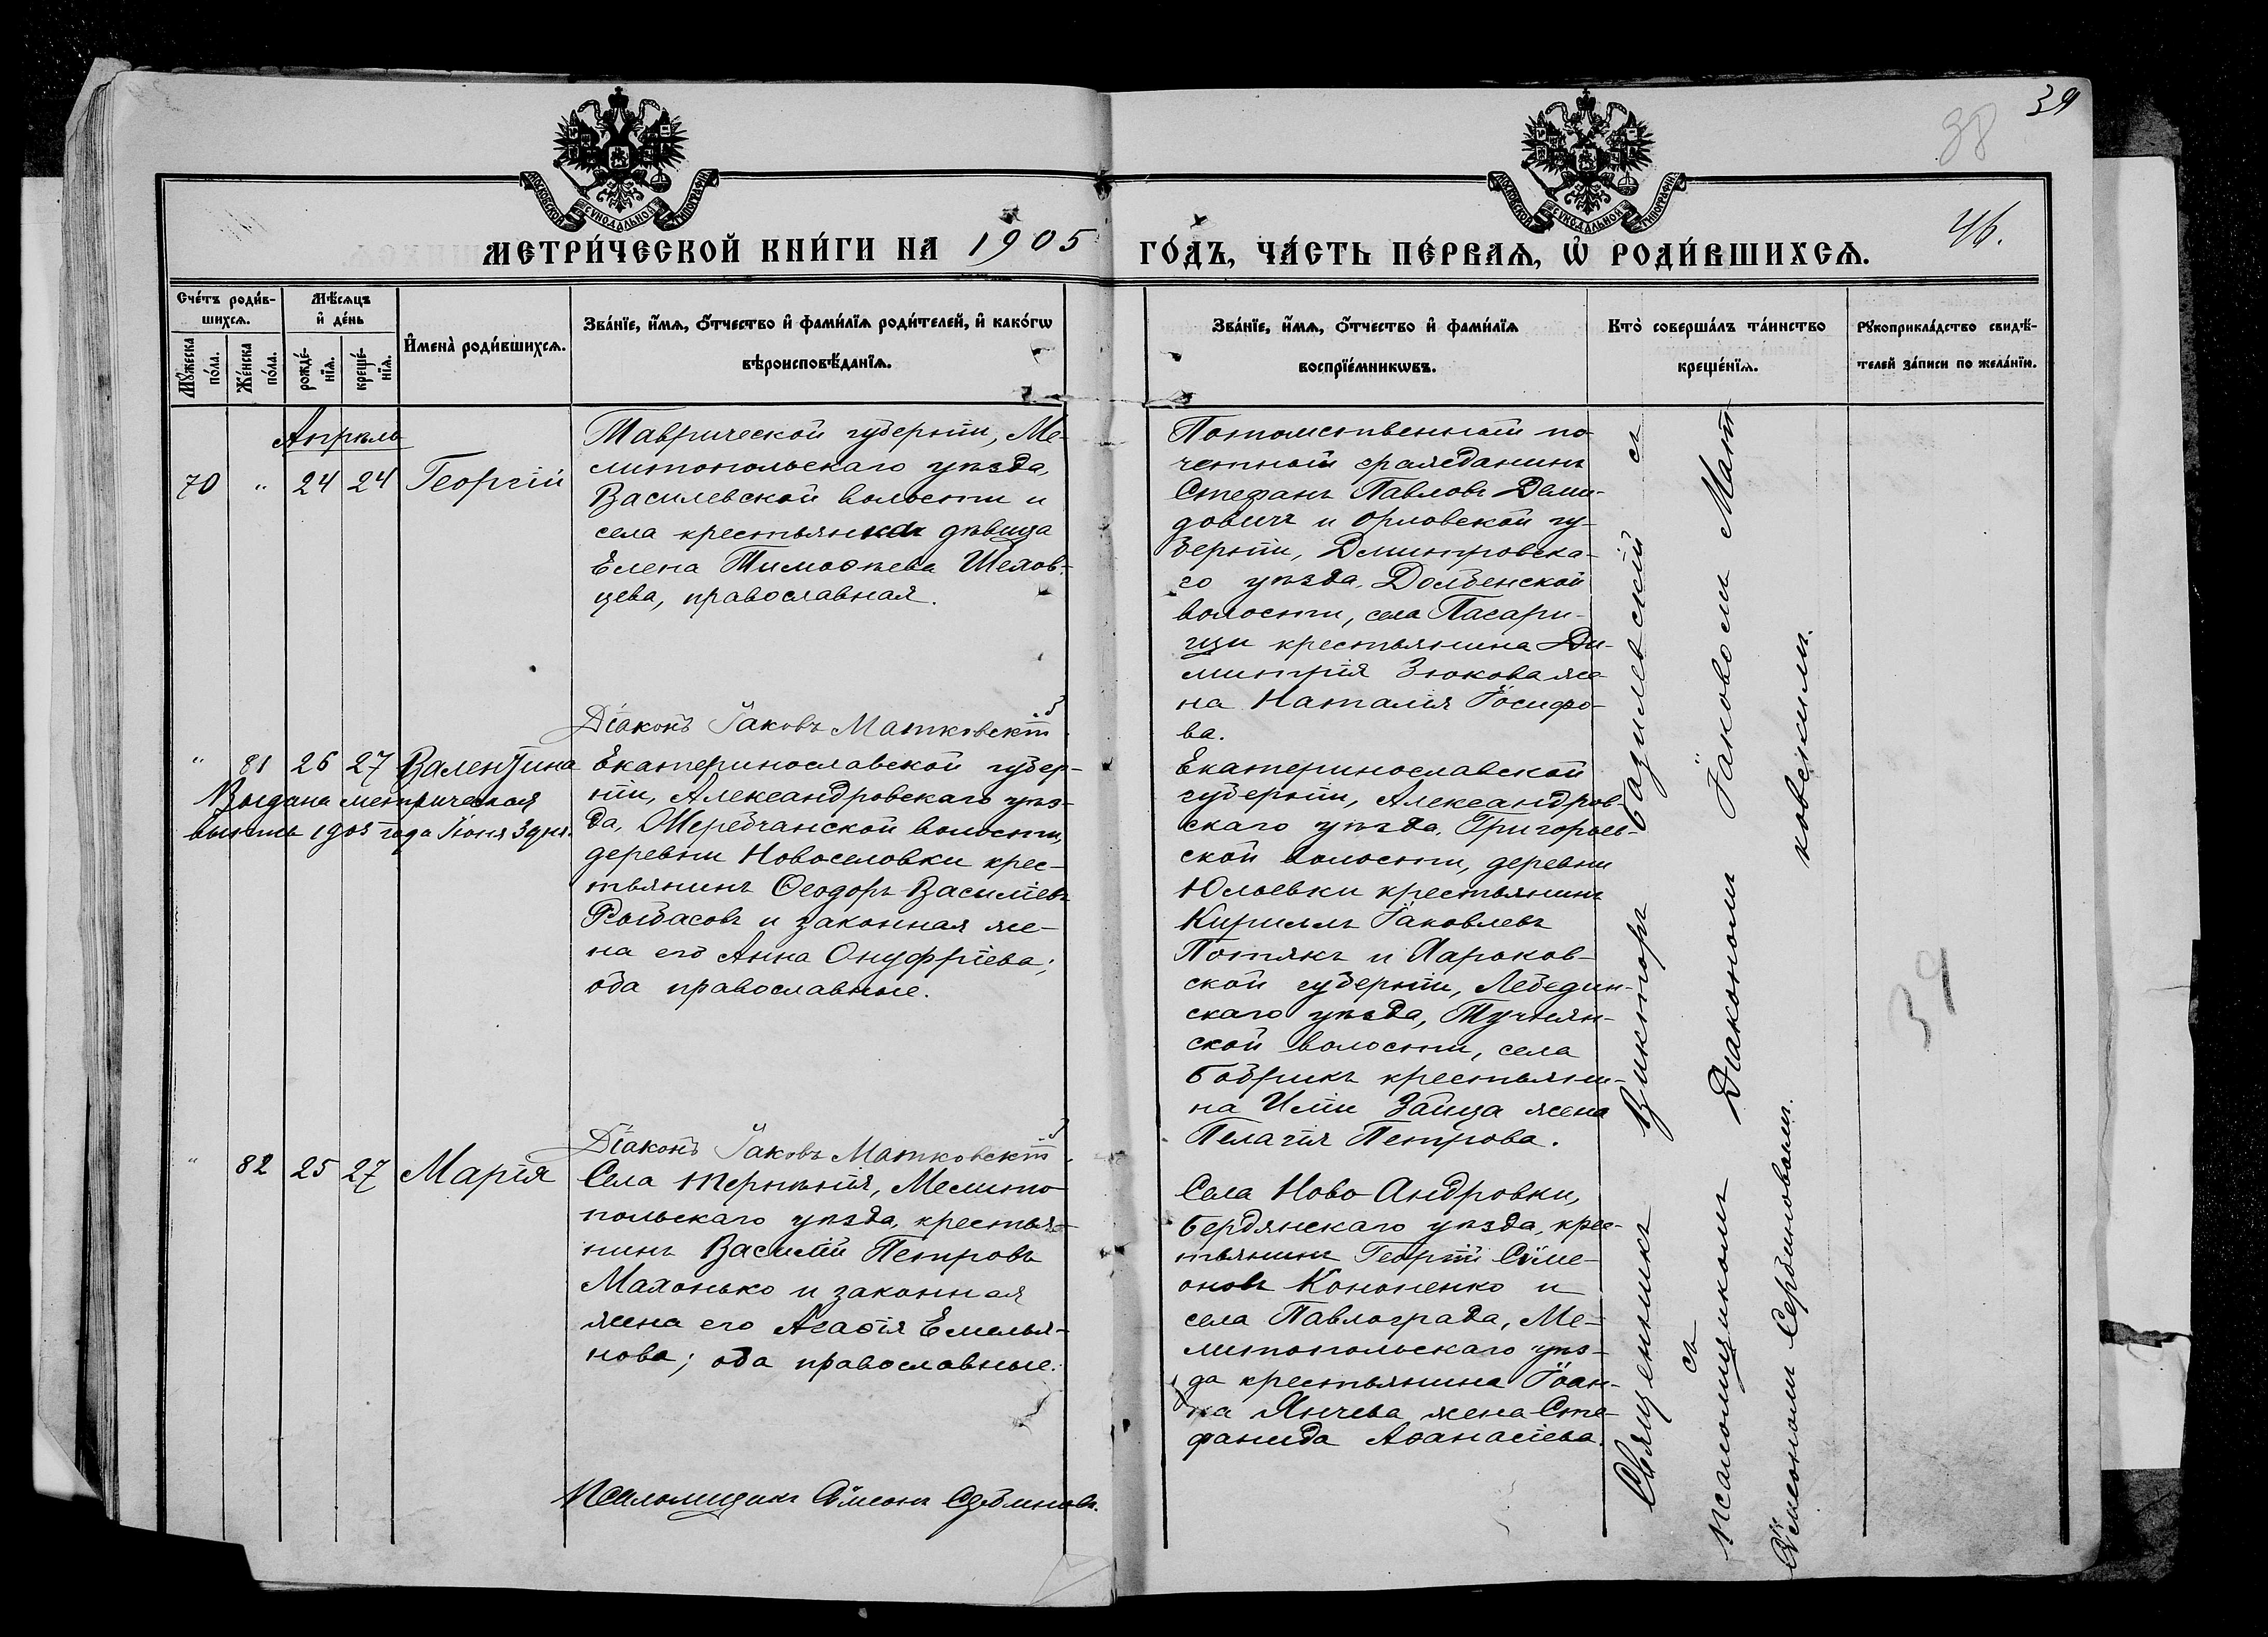 39
38
46.
МОСКОВСКОЙ СУНОДАЛЬНОЙ ТИПОГРАФІИ
МОСКОВСКОЙ СУНОДАЛЬНОЙ ТИПОГРАФІИ
МЕТРИ́ЧЕСКОЙ КНИ́ГИ НА 1905
ГО́ДЪ, ЧА́СТЬ ПЕ́РВАѦ, Ѡ҆ РОДИ́ВШИХСѦ.
Сче́тъ роди́в-
шихсѧ.
Мꙋ́жеска по́ла.
Же́нска по́ла.
Мѣ́сѧцъ
и҆ де́нь
рожде́-нїѧ.
креще́-нїѧ.
И҆мена̀ роди́вшихсѧ.
Зва́нїе, и҆́мѧ, ѻ҆́тчество и҆ фами́лїѧ роди́телей, и҆ како́гѡ
вѣроисповѣ́данїѧ.
Зва́нїе, и҆́мѧ, ѻ҆́тчество и҆ фами́лїѧ
воспрїе́мникѡвъ.
Кто̀ соверша́лъ та́инство
креще́нїѧ.
Рꙋкоприкла́дство свидѣ́-
телей за́писи по жела́нїю.
Апрѣль
70 " 24 24 Георгій
Таврической губерніи, Ме-
литопольскаго уѣзда,
Василевской волости и
села крестьянка дѣвица
Елена Тимоѳеева Шехов-
цева, православная.
Потомственный по-
четный гражданинъ
Стефанъ Павловъ Деми-
довичъ и Орловской гу-
берніи, Дмитровска-
го уѣзда, Долбенской
волости, села
крестьянина Ди-
митрія Зюкова же-
на Наталія Іосифо-
ва.
Діаконъ Іаковъ Матковскій
" 81 26 27 Валентина
Выдана метрическая
выпись 1905 года Іюня 3 дня.
Екатеринославской губер-
ніи, Александровскаго уѣз-
да, Жеребчанской волости,
деревни Новоселовки крес-
тьянинъ Ѳеодоръ Василіевъ
Рыбасовъ и законная же-
на его Анна Онуфріева;
оба православные.
Екатеринославской
губерніи, Александров-
скаго уѣзда, Григорьев-
ской волости, деревни
Юльевки крестьянинъ
Кириллъ Іаковлевъ
Потякъ и Харьков-
ской губерніи, Лебедин-
скаго уѣзда, Тучнян-
ской волости, села
Бобрикъ крестьяни-
на Иліи Зайца жена
Пелагія Петрова.
Діаконъ Іаковъ Матковскій
" 82 25 27 Марія
Села Терпѣнія, Мелито-
польскаго уѣзда, крестья-
нинъ Василій Петровъ
Махонько и законная
жена его Агаѳія Емелья-
нова; оба православные.
Села Ново-Андровки,
Бердянскаго уѣзда, крес-
тьянинъ Георгій Сѵме-
оновъ Кононенко и
села Павлограда, Ме-
литопольскаго уѣз-
да крестьянина Іоан-
на Янчева жена Сте-
фанида Аѳанасіева.
Псаломщикъ Сѵмеонъ Сербиновъ.
Священникъ Викторъ Базилевскій съ
Діакономъ Іаковомъ Мат-
ковскимъ.
съ псаломщикомъ
Сѵмеономъ Сербиновымъ.
39